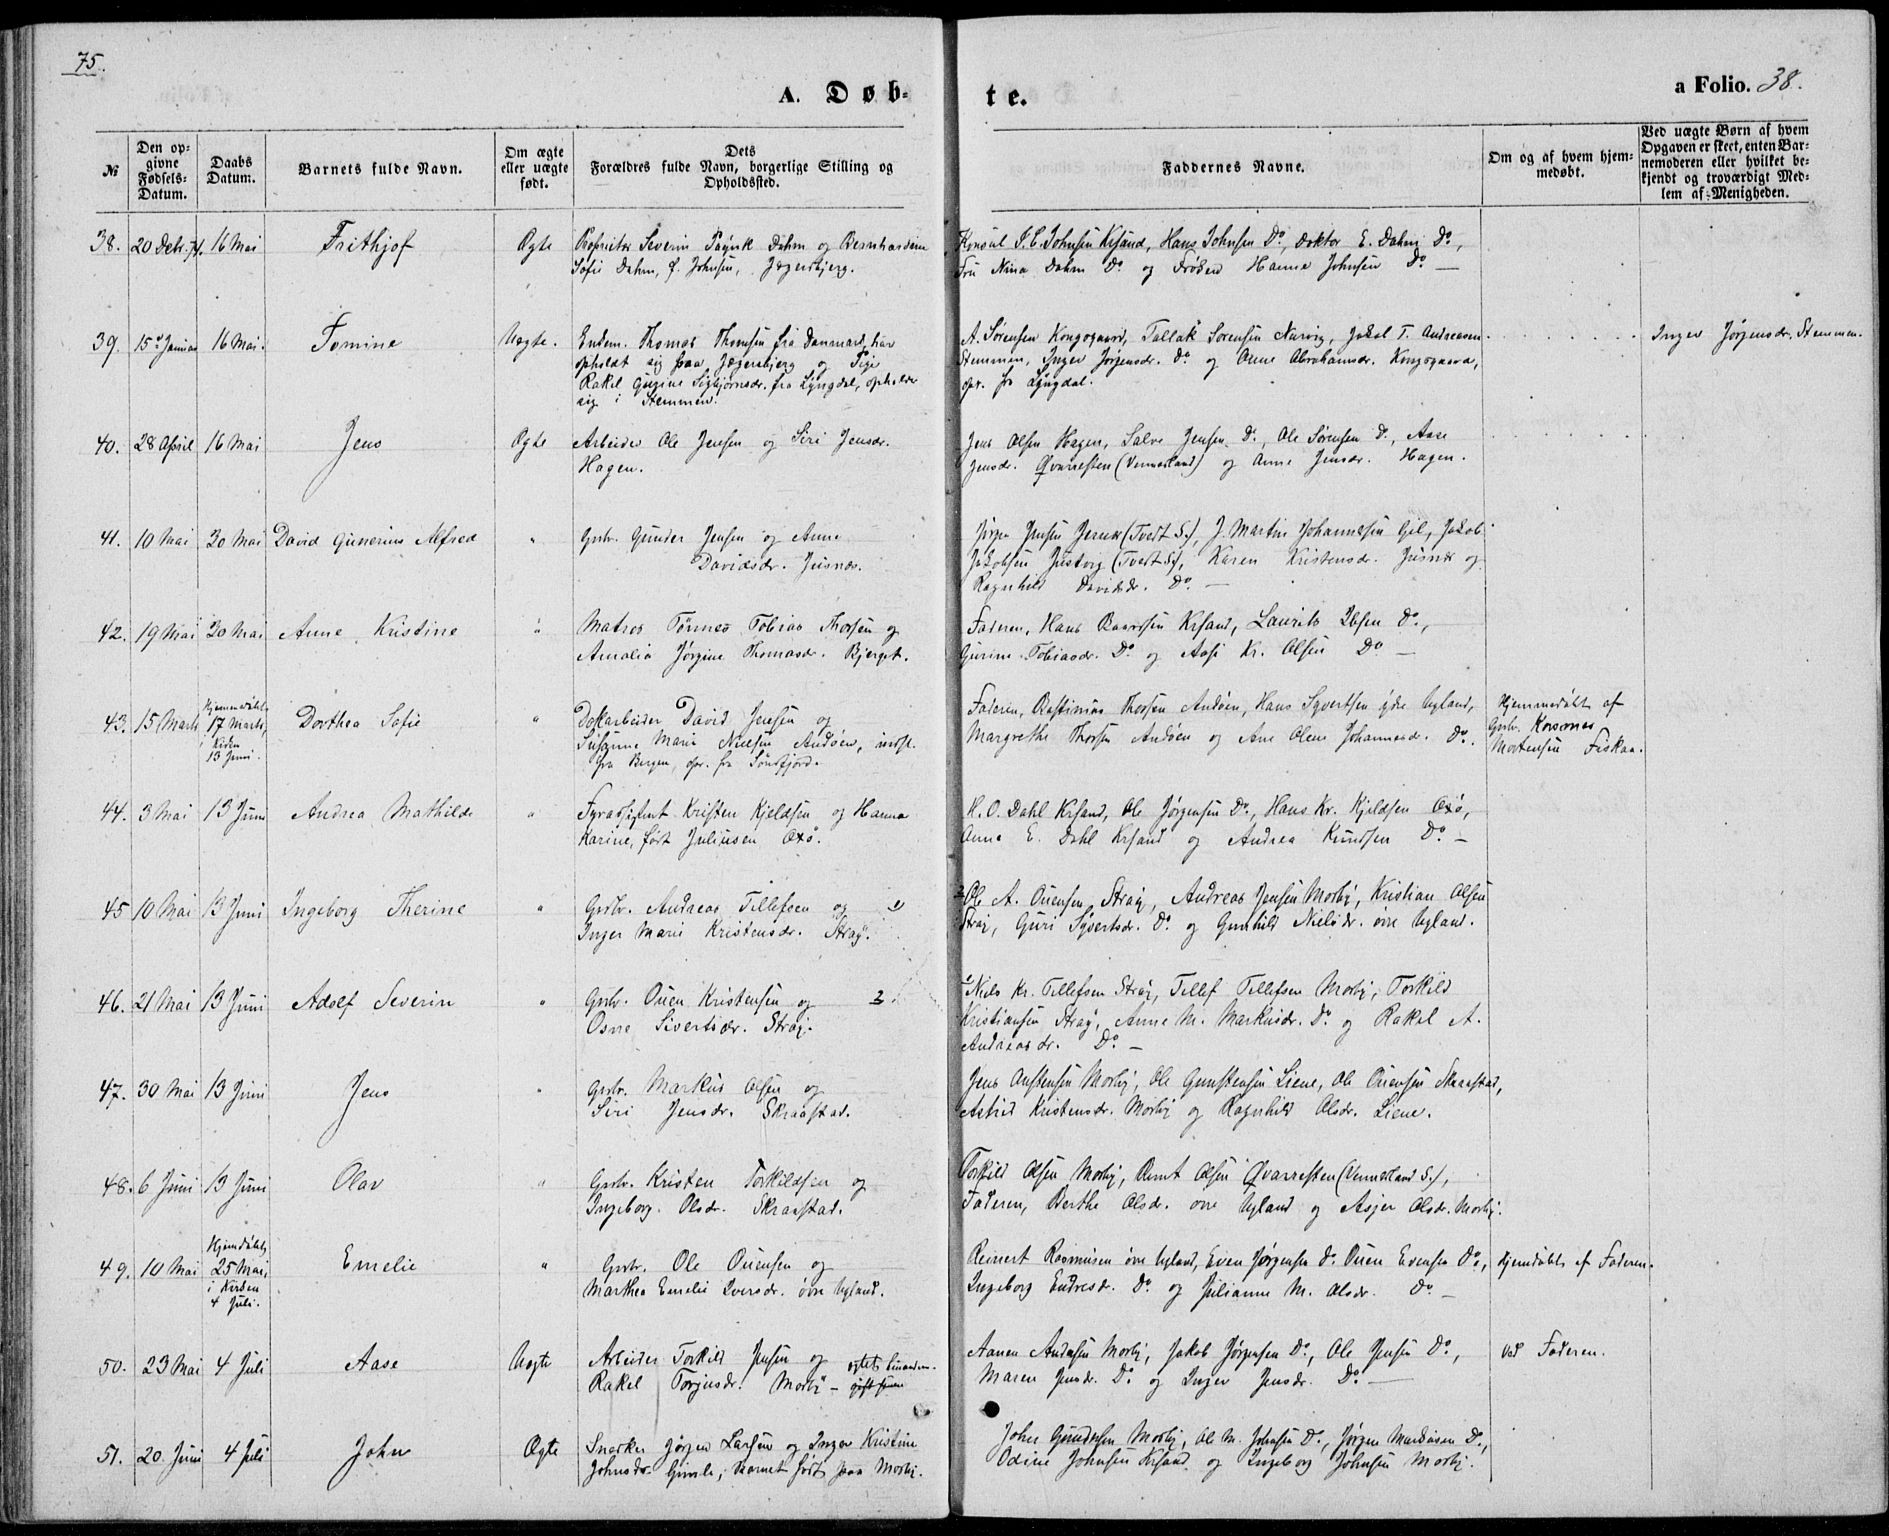 75.
A. Døb-
te.
a Folio. 38.
№
Den op-
givne
Fødsels-
Datum.
Daabs
Datum.
Barnets fulde Navn.
Om ægte
eller uægte
født.
Dets
Forældres fulde Navn, borgerlige Stilling og
Opholdssted.
Faddernes Navne.
Om og af hvem hjem-
medøbt.
Ved uægte Børn af hvem
Opgaven er skeet, enten Bar-
nemoderen eller hvilket be-
kjendt og troværdigt Med-
lem af Menigheden.
38. 20 Debr. 74. 16 Mai Frithjof Ægte Proprietær Severin Dahm og Bernhardine
Sofie Dahm, f. Johnsen, Jægersbjerg.
Konsul J. C. Johnsen Krsand, Hans Johnsen Do, Doktor E. Dahm Do,
Fru Nina Dahm Do og Frøken Hanne Johnsen Do —
39. 15de Januar 16 Mai. Tomine Uægte. Enkem. Thomas Thomsen fra Danmark, har
opholdt sig paa Jægersbjerg og Pige
Rakel Gurine Sigbjørnsdr. fra Lyngdal, opholder
sig i Stemmen.
A. Sørensen Kongsgaard, Tallak Sørensen Narvig, Jakob T. Andreasen
Stemmen, Inger Jørgensdr. Do og Anne Abrahamsdr. Kongsgaard,
opr. fr Lyngdal.
Inger Jørgensdr. Stemmen.
40. 28 April 16 Mai Jens Ægte Arbeider Ole Jensen og Siri Jensdr.
Hagen.
Jens Olsen Hagen, Salve Jensen Do, Ole Sørensen Do, Aase
Jensdr. Qvarresten (Vennesland) og Anne Jensdr. Hagen.
41. 10 Mai 30 Mai David Gunerius Alfred " Grbr. Gunder Jensen og Anne
Davidsdr. Justnæs.
Jørgen Jensen (Tvedt S.), J. Martin Johannesen Gil, Jakob
Jakobsen Justvig (Tvedt S), Karen Kristensdr. Justnæs og
Ragnhild Davidsdr. Do. —
42. 19 Mai 30 Mai Anne Kristine " Matros Tønnes Tobias Thorsen og
Amalia Jørgine Thomasdr. Bjerget.
Faderen, Hans Baardsen Krsand, Laurits Ibsen Do,
Gurine Tobiasdr. Do og Aase Kr. Olsen Do —
43. 15 Marts Hjemmedøbt
17 Marts,
i Kirken
13 Juni. Dorthea Sofie " Dokarbeider David Jensen og
Susanne Marie Nielsen Andøen, indfl.
fra Bergen, opr. fra Søndfjord.
Faderen, Thorsen Andøen, Hans Syvertsen ydre Vgland,
Margrethe Thorsen Andøen og Ane Olene Johannesd. Do.
Hjemmedøbt af
Grbr.
Mortensen Fiskaa.
44. 3 Mai 13 Juni Andrea Mathilde " Fyrassistent Kristen Kjeldsen og Hanna
Karine, født Juliusen Oxø.
H. O. Dahl Krsand, Ole Jørgensen Do, Hans Kr. Kjeldsen Oxø,
Anne E. Dahl Krsand og Andrea Knudsen Do —
45 10 Mai 13 Juni Ingeborg Therine " Grbr. Andreas Tellefsen og
Inger Marie Kristensdr. Strai.
2 Ole A. Ouensen Strai, Andreas Jensen Mosby, Kristian Olsen
Strai, Guri Syvertsdr. Do og Gunhild Nielsdr. øvre Vgland.
46. 21 Mai 13 Juni Adolf Severin " Grbr. Ouen Kristensen og 2
Osne Sivertsdr. Strai.
1 Niels Kr. Tellefsen Strai, Tellef Tellefsen Mosby, Torkild
Kristiansen Strai, Anne M. Markusdr. Do og Rakel A.
Andreasdr. Do —
47. 30 Mai 13 Juni Jens " Grbr. Markus Olsen og
Siri Jensdr. Skraastad.
Jens Austensen Mosby, Ole Gunstensen Liene, Ole Ouensen Skraastad,
Astrid Kristensdr. Mosby og Ragnhild Olsdr. Liene.
48. 6 Juni 13 Juni Olav " Grbr. Kristen Torkildsen og
Ingeborg Olsdr. Skraastad.
Torkild Olsen Mosby, Bernt Olsen Qvarresten (Vennesland S.),
Faderen, Berthe Olsdr. øvre Vgland og Asjer Olsdr. Mosby.
49. 10 Mai Hjemdøbt
25 Mai,
i Kirken
4 Juli. Emelie " Grbr. Ole Ouensen og
Marthea Emelie Iversdr. øvre Vgland.
Reinert Rasmussen øvre Vgland, Even Jørgensen Do Ouen Evensen Do,
Ingeborg Endresdr. Do og Julianne M. Olsdr. Do —
Hjemdøbt af Faderen.
50. 23 Mai 4 Juli Aase Uægte Arbeider Torkild Jensen og
Rakel Torjusdr. Mosby —
Aanen Andersen Mosby, Jakob Jørgensen Do, Ole Jensen Do,
Maren Jensdr. Do og Inger Jensdr. Do —
ved Faderen.
51. 20 Juni 4 Juli John Ægte Snedker Jørgen Larsen og Inger Kristine
Johnsdr. Gimle, Barnet født paa Mosby.
John Gundersen Mosby, Ole M. Johnsen Do, Jørgen Markusen Do,
Odine Johnsen Krsand og Ingeborg Johnsen Mosby.